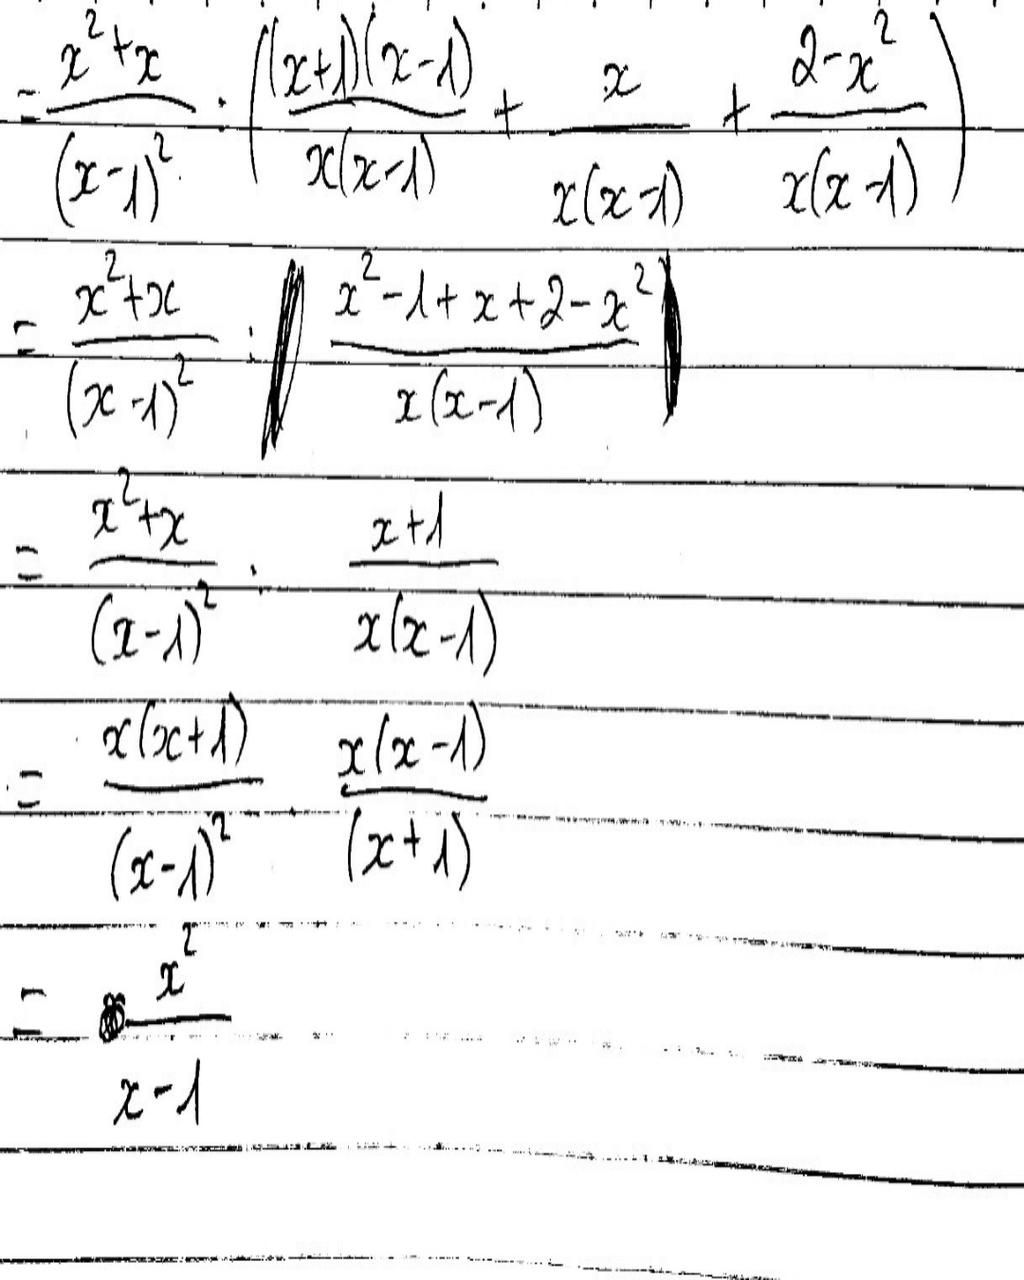 = \frac{x^2+x}{(x-1)^2} : \left( \frac{(x+1)(x-1)}{x(x-1)} + \frac{x}{x(x-1)} + \frac{2-x^2}{x(x-1)} \right)
= \frac{x^2+x}{(x-1)^2} : \frac{x^2-1+x+2-x^2}{x(x-1)}
= \frac{x^2+x}{(x-1)^2} : \frac{x+1}{x(x-1)}
= \frac{x(x+1)}{(x-1)^2} . \frac{x(x-1)}{(x+1)}
= \frac{x^2}{x-1}